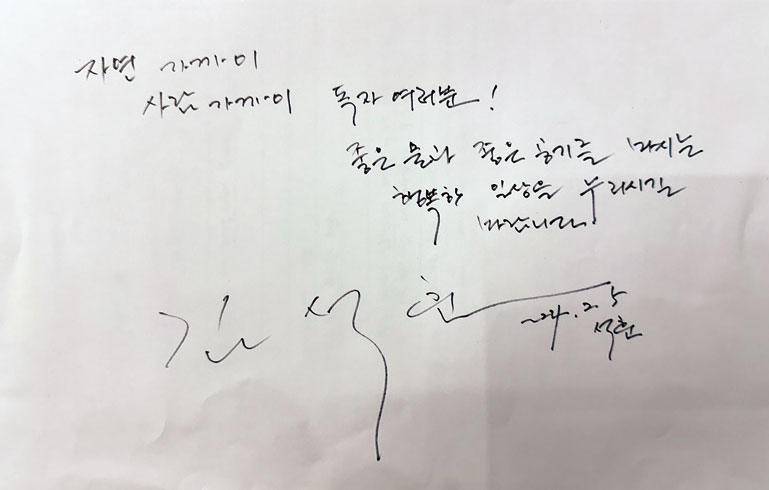 자연 가까이
사람 가까이 독자 여러분!
좋은 물과 좋은 공기를 마시는
행복한 일상을 누리시길
바랍니다.
김석훈
24. 2. 5
석훈